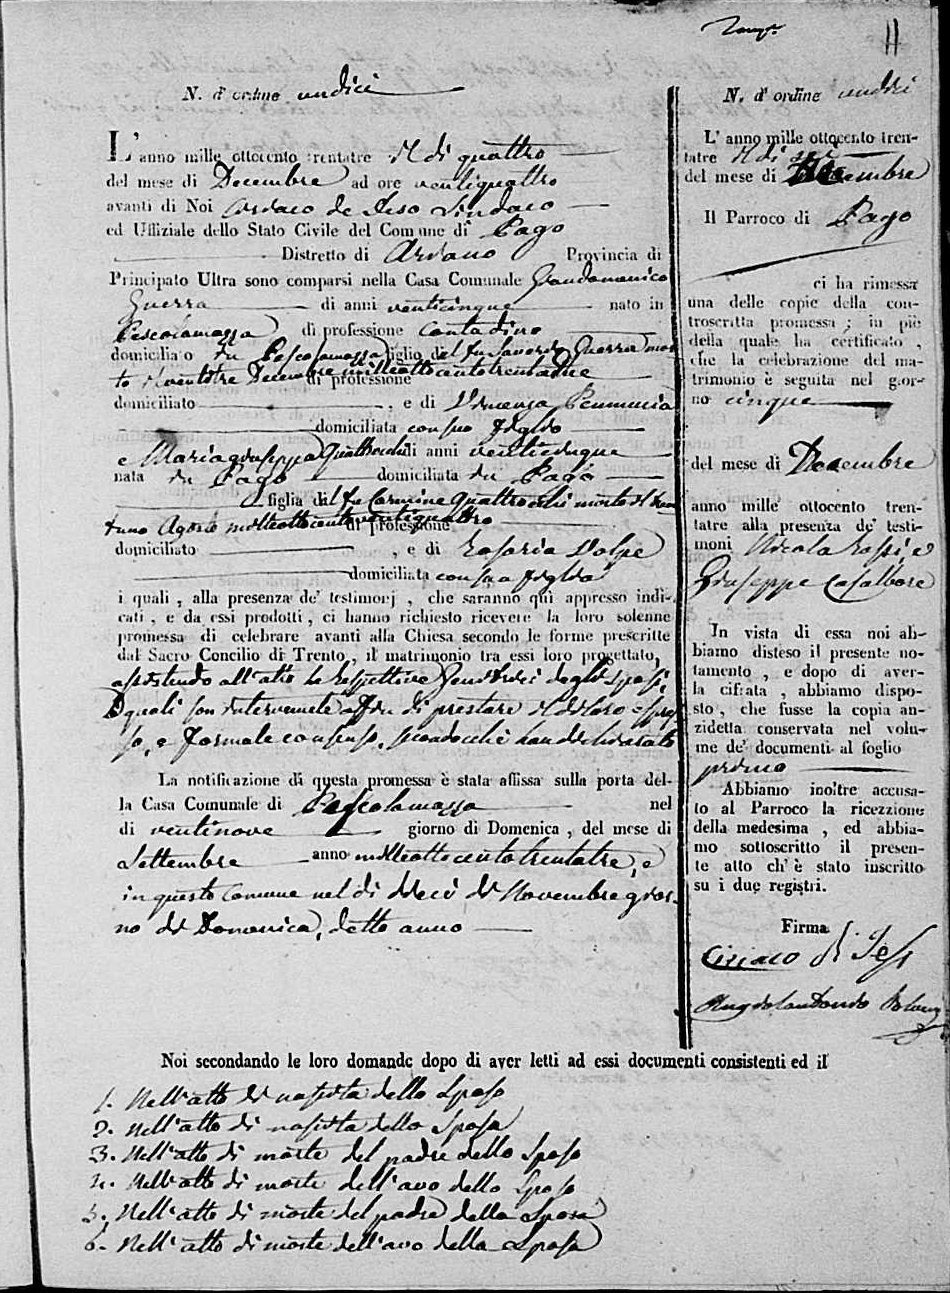 11
N. d' ordine undici
L' anno mille ottocento trentatre il di quattro
del mese di Decembre ad ore ventiquattro
avanti di Noi Ciriaco de Jeso Sindaco
ed Uffiziale dello Stato Civile del Comune di Pago
Distretto di Ariano Provincia di
Principato Ultra sono comparsi nella Casa Comunale Giandomenico
Guerra di anni venticinque nato in
Pescolamazza di professione contadino
domiciliato in Pescolamazza figlio del fu Saverio Guerra mor
to il ventitre Decembre milleottocentotrentadue
di professione
domiciliato , e di Vincenza
domiciliata con suo figlio
e Mariagiuseppa Quattrocchi di anni venticinque
nata in Pago domiciliata in Pago
figlia del fu Carmine Quattrocchi morto il tren
tuno Agosto milleottocentoventiquattro
di professione
domiciliato , e di Rosaria Volpe
domiciliata con sua figlia
i quali , alla presenza de' testimorj , che saranno quì appresso indi-
cati , e da essi prodotti , ci hanno richiesto ricevere la loro solenne
promessa di celebrare avanti alla Chiesa secondo le forme prescritte
dal Sacro Concilio di Trento , il matrimonio tra essi loro progettato,
assistendo all'atto le rispettive Genitrici degli Sposi,
I quali son intervenute affin di prestare il di loro espres
so, e formale consenso, secondocchè han dichiarato
La notificazione di questa promessa è stata affissa sulla porta del-
la Casa Comunale di Pescolamazza nel
di ventinove giorno di Domenica , del mese di
Settembre anno milleottocentotrentatre, e
in questo Comune nel di dieci di Novembre gior-
no di Domenica, detto anno
N. d' ordine undici
L' anno mille ottocento tren-
tatre il di sei
del mese di Decembre
Il Parroco di Pago
ci ha rimessa
una delle copie della con-
troscritta promessa ; in piè
della quale ha certificato ,
che la celebrazione del ma-
trimonio è seguita nel gior-
no cinque
del mese di Decembre
anno mille ottocento tren-
tatre alla presenza de' testi-
moni Nicola Rossi e
Giuseppe Casalbore
In vista di essa noi ab-
biamo disteso il presente no-
tamento , e dopo di aver-
la cifrata , abbiamo dispo-
sto , che fusse la copia an-
zidetta conservata nel volu-
me de' documenti al foglio
primo
Abbiamo inoltre accusa-
to al Parroco la ricezzione
della medesima , ed abbia-
mo sottoscritto il presen-
te atto ch' è stato inscritto
su i due registri.
Firma
Ciriaco di Jeso
Noi secondando le loro domande dopo di aver letti ad essi documenti consistenti ed il
1. Nell'atto di nascita dello Sposo
2. Nell'atto di nascita della Sposa
3. Nell'atto di morte del padre dello Sposo
4. Nell'atto di morte dell'avo dello Sposo
5. Nell'atto di morte del padre della Sposa
6. Nell'atto di morte dell'avo della Sposa